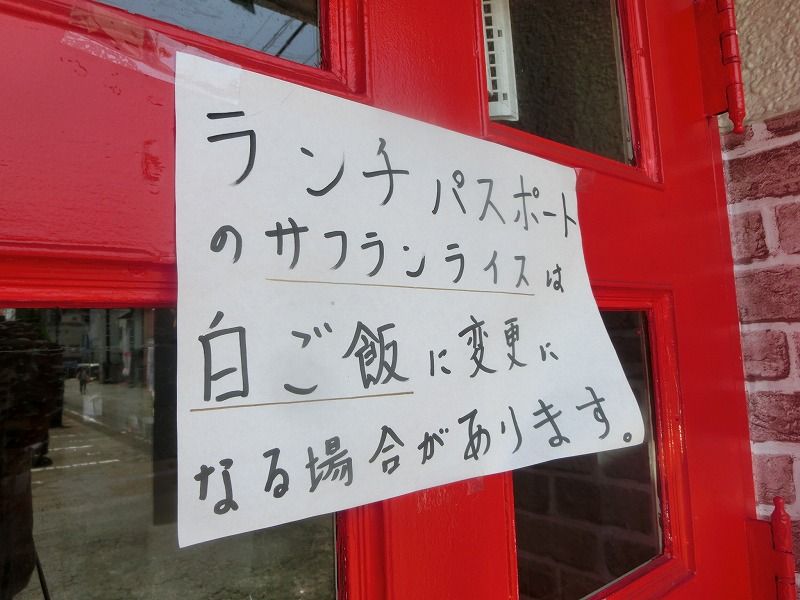 ランチパスポート
のサフランライスは
白ご飯に変更に
なる場合があります。